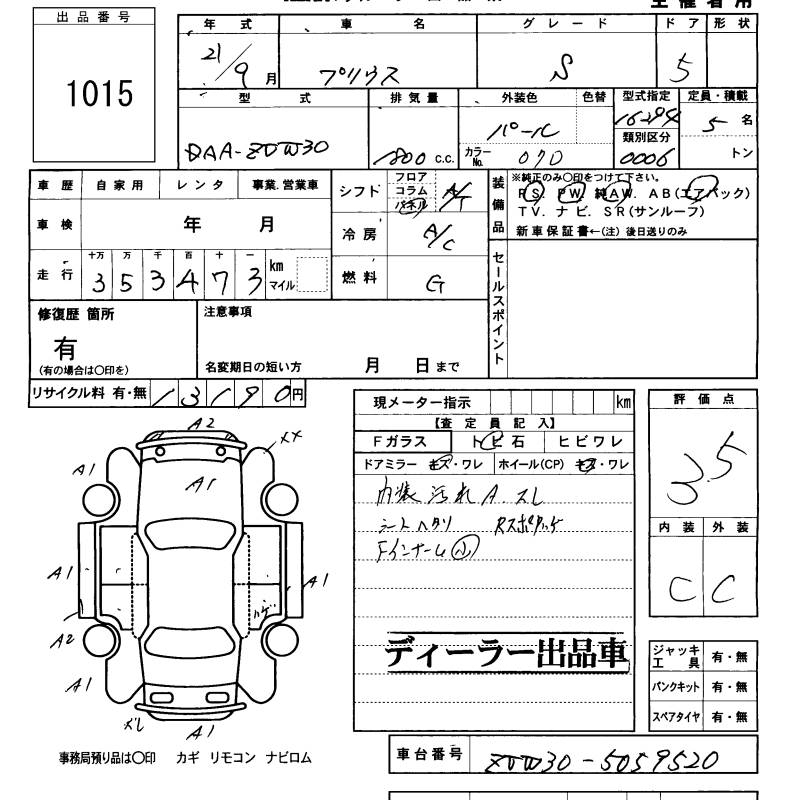 出品番号
1015
年式 車名 グレード ドア 形状
21/9 月 プリウス S 5
型式 排気量 外装色 色替 型式指定 定員・積載
DAA-ZVW30 1800 c.c. パール 16294 5 名
カラーNo. 070 類別区分 0006 トン
車歴 自家用 レンタ 事業.営業車
シフト フロア コラム パネル A/T
装備品 ※純正のみ○印をつけて下さい。
PS. PW. 純AW. AB(エアバック)
TV. ナビ. SR(サンルーフ)
新車保証書←(注) 後日送りのみ
車検 年 月
冷房 A/C
走行 十万 万 千 百 十 一
353473 km マイル
燃料 G
セールスポイント
修復歴 箇所
有
(有の場合は○印を)
注意事項
名変期日の短い方 月 日まで
リサイクル料 有・無 13190円
現メーター指示 km
【査定員記入】
Fガラス トビ石 ヒビワレ
ドアミラー キズ・ワレ ホイール(CP) キズ・ワレ
内装汚れ A.スレ
シートヘタリ
Fインナー 小
ディーラー出品車
評価点
3.5
内装 外装
C C
A2
A1
A1
A1
A1
A2
A1
A1
ジャッキ工具 有・無
パンクキット 有・無
スペアタイヤ 有・無
事務局預り品は○印 カギ リモコン ナビロム
車台番号 ZVW30-5059520